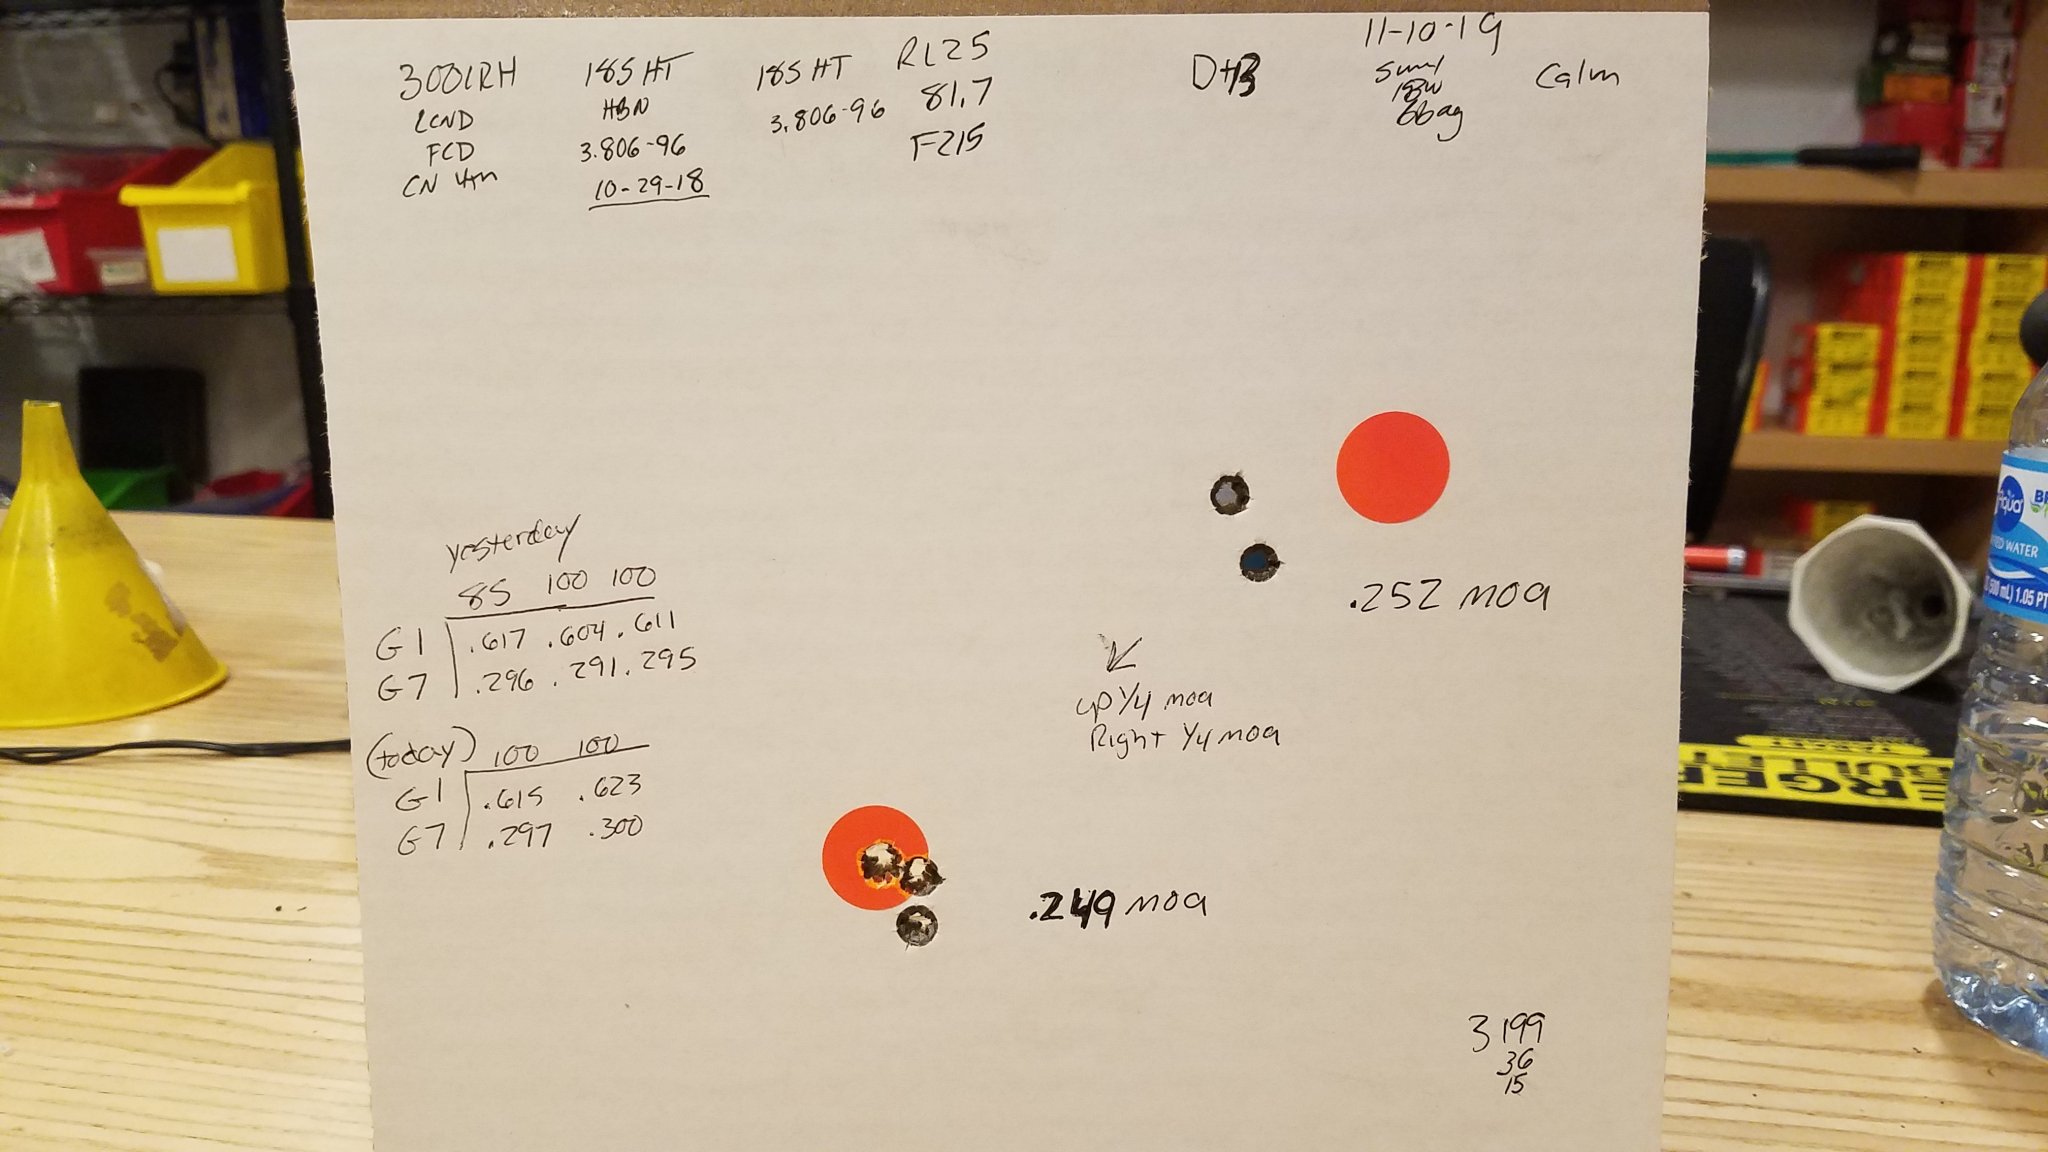 300 IRH 185 HT 185 HT RL25 D+B 11-10-19
LCND HBN 3.806-96 81.7 Calm
FCD 3.806-96 F215
10-29-18
yesterday
85 100 100
G1 .617 .604 .611
G7 .296 .291 .295
(today) 100 100
G1 .615 .623
G7 .297 .300
.252 moa
up 1/4 moa
Right 1/4 moa
.249 moa
3199
36
15
Aqua
WATER
1.05 PT
BULLET